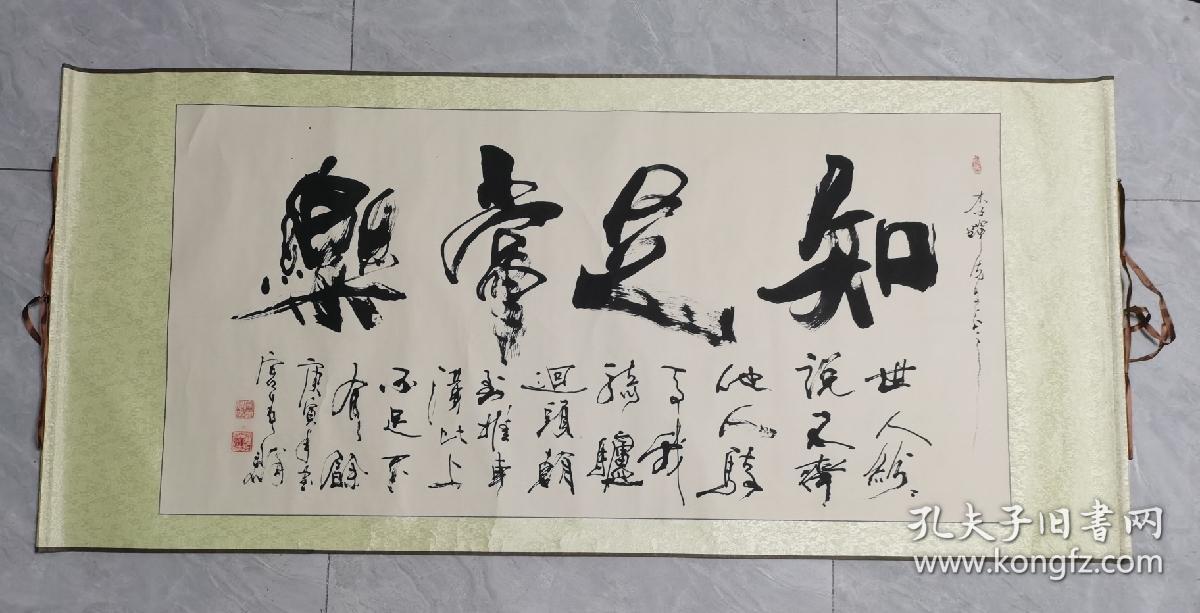 知足常樂
李暉
世人紛紛
說不齊
他人騎
馬我
騎驢
迴頭
到推車
漢比上
不足下
有餘
庚寅年
孔夫子旧书网
www.kongfz.com